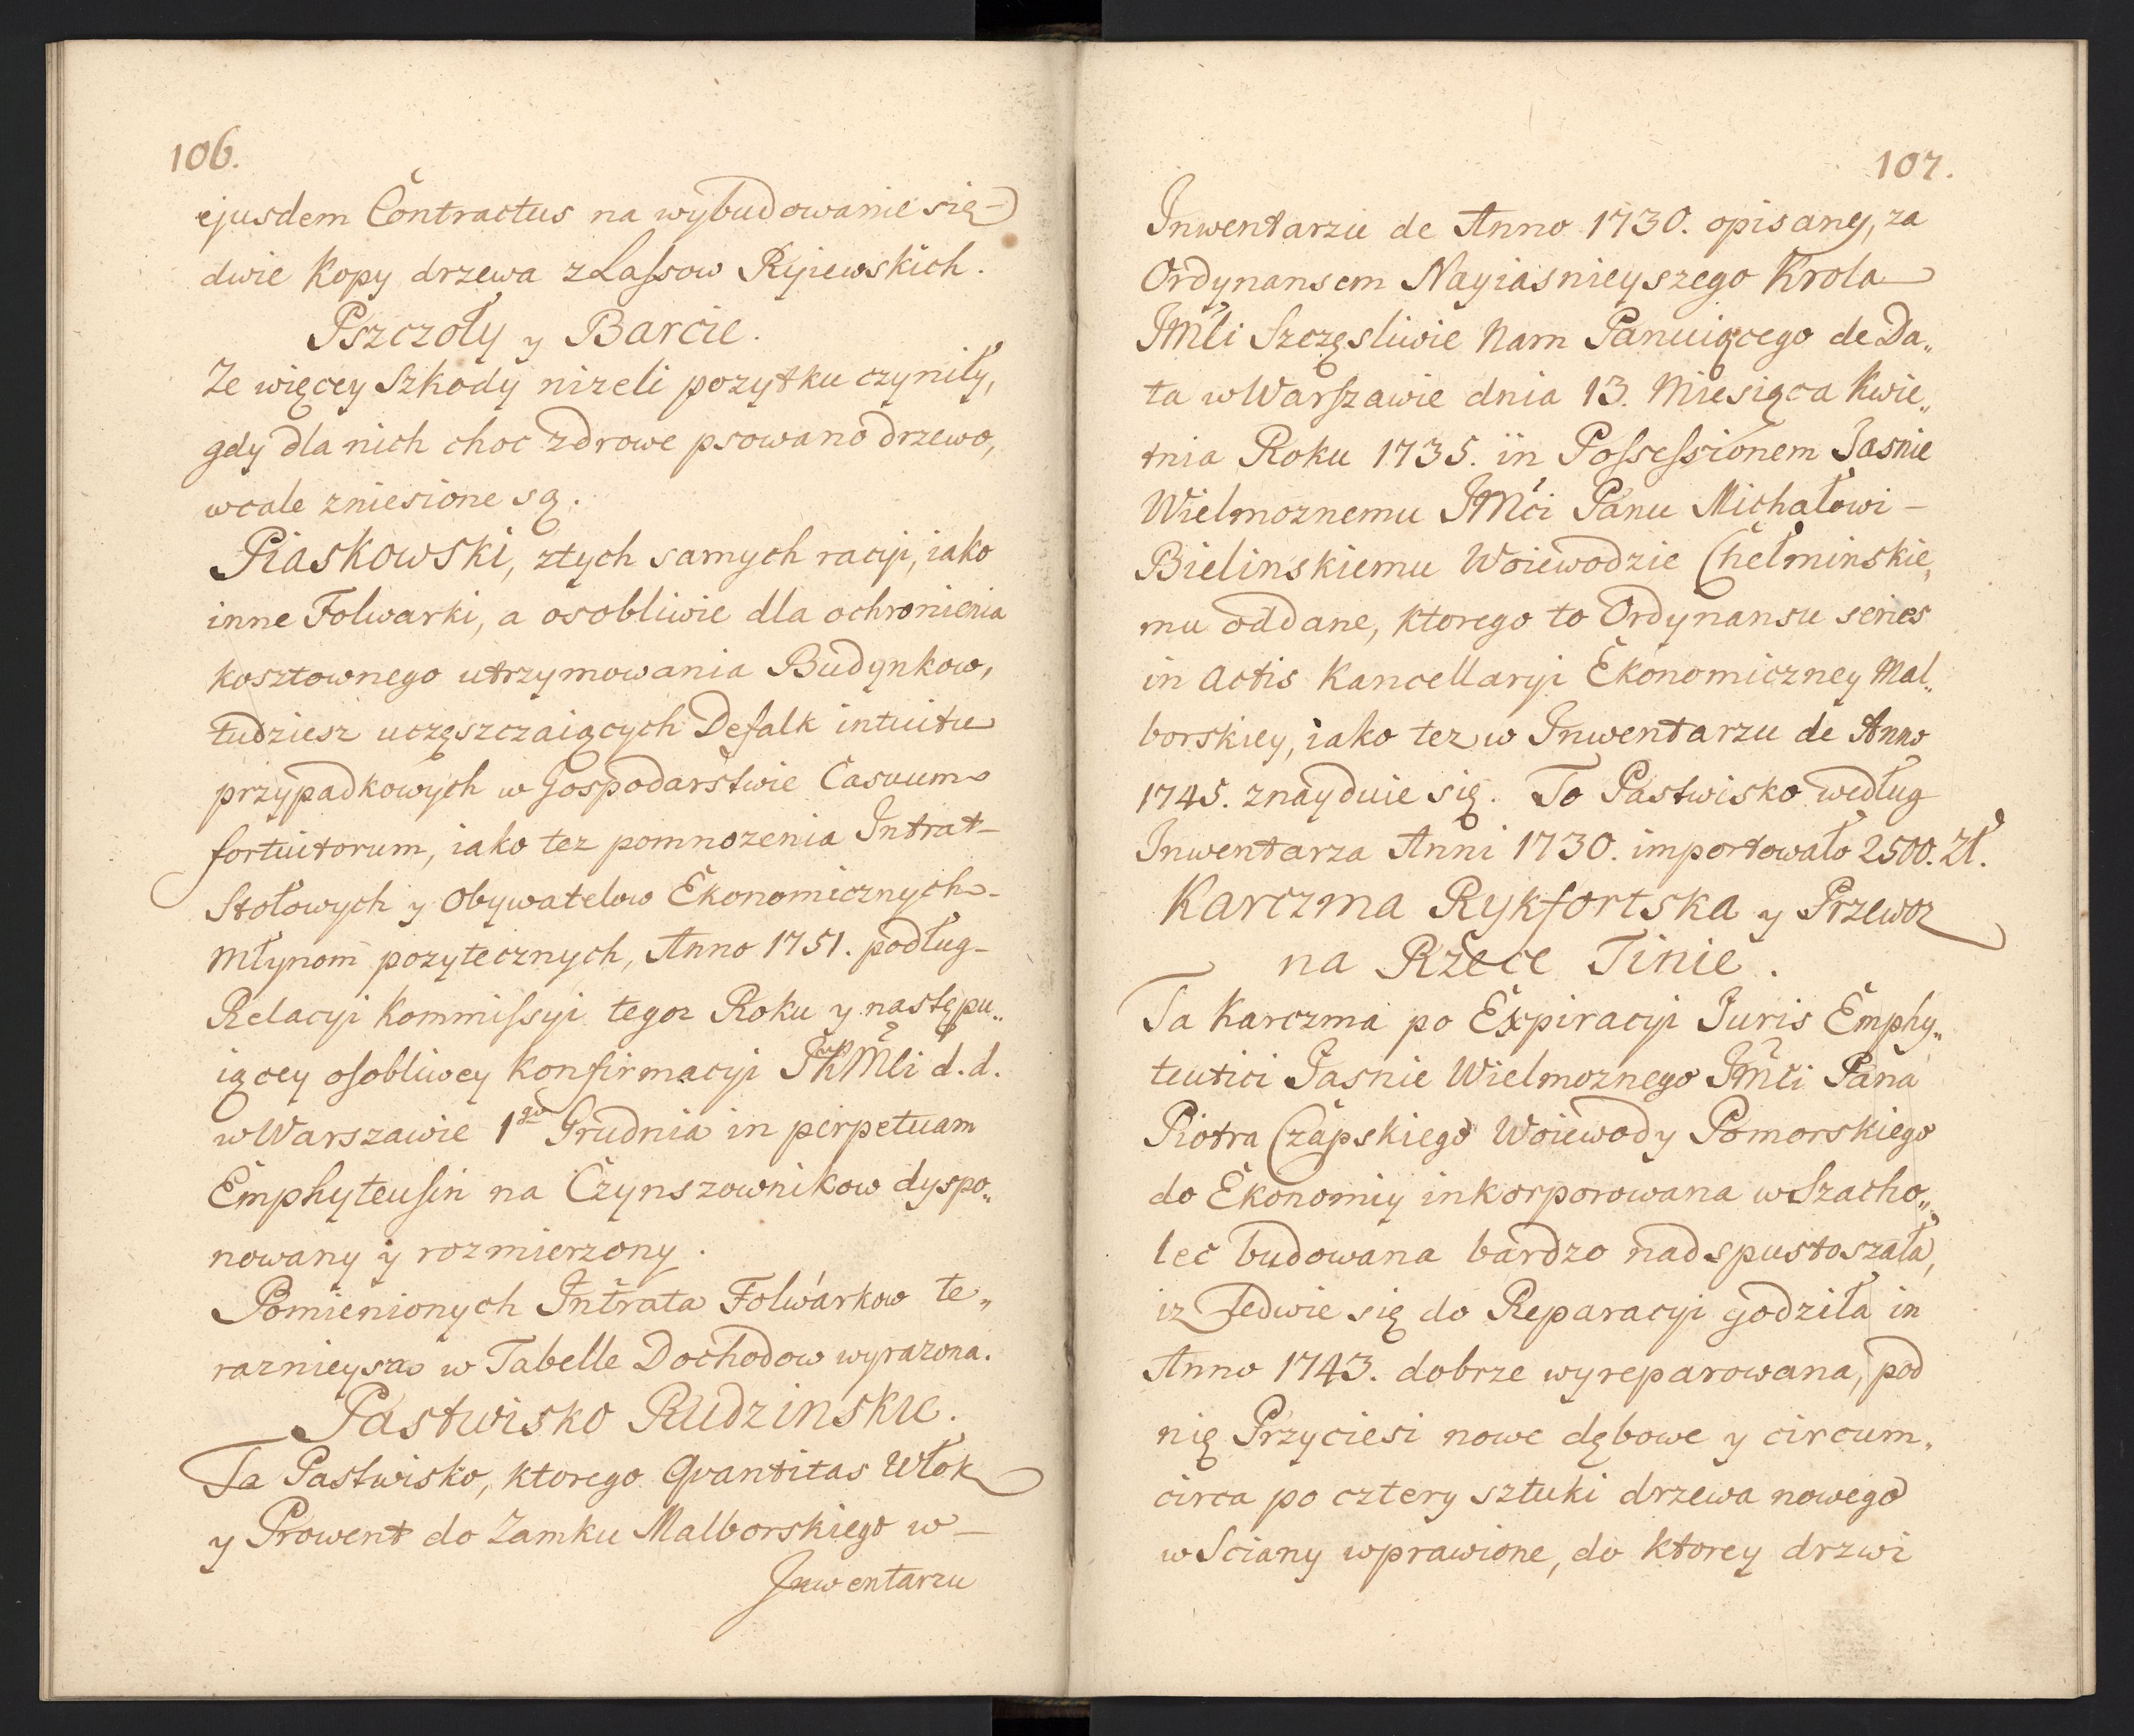 106.
ejusdem Contractus na wybudowanie się
dwie Kopy drzewa z Lassow Ryjewskich.
Pszczoły y Barcie.
Ze więcey Szkody nizeli pozytku czyniły,
gdy dla nich choc zdrowe psowano drzewo,
wcale zniesione są.
Piaskowski, z tych samych racyi, iako
inne Folwarki, a osobliwie dla ochronienia
kosztownego utrzymowania Budynkow,
tudziesz uczęszczaiących Defalk intuitu
przypadkowych w Gospodarstwie Casuum
fortuitorum, iako tez pomnozenia Intrat
Stołowych y Obywatelow Ekonomicznych
Młynom pozytecznych, Anno 1751. podług
Relacyi Kommissyi tegoz Roku y następu„
iącey osobliwey Konfirmacyi JKMći d. d.
w Warszawie 1go Grudnia in perpetuam
Emphyteusin na Czynszownikow dyspo„
nowany y rozmierzony.
Pomienionych Intrata Folwarkow te„
raznieysza w Tabelle Dochodow wyrazona.
Pastwisko Rudzinskie.
Ta Pastwisko, ktorego Quantitas Włok
y Prowent do Zamku Malborskiego w
Inwentarzu
107.
Inwentarzu de Anno 1730. opisany, za
Ordynansem Nayiasnieyszego Krola
JMći Szczęsliwie Nam Panuiącego de Da„
ta w Warszawie dnia 13. Miesiąca Kwie„
tnia Roku 1735. in Possessionem Jasnie
Wielmoznemu JMći Panu Michałowi
Bielinskiemu Woiewodzie Chełminskie„
mu oddane, ktorego to Ordynansu series
in Actis Kancellaryi Ekonomiczney Mal„
borskiey, iako tez w Inwentarzu de Anno
1745. znayduie się. To Pastwisko według
Inwentarza Anni 1730. importowało 2500. Zł.
Karczma Rykfortska y Przewoz
na Rzece Tinie.
Ta Karczma po Expiracyi Juris Emphy„
teutici Jasnie Wielmoznego JMći Pana
Piotra Czapskiego Woiewody Pomorskiego
do Ekonomiy inkorporowana w Szacho„
lec budowana bardzo nadspustoszała,
iz Jedwie się do Reparacyi godziła in
Anno 1743. dobrze wyreparowana, pod
nię Przyciesi nowe dębowe y circum„
circa po cztery sztuki drzewa nowego
w Sciany wprawione, do ktorey drzwi